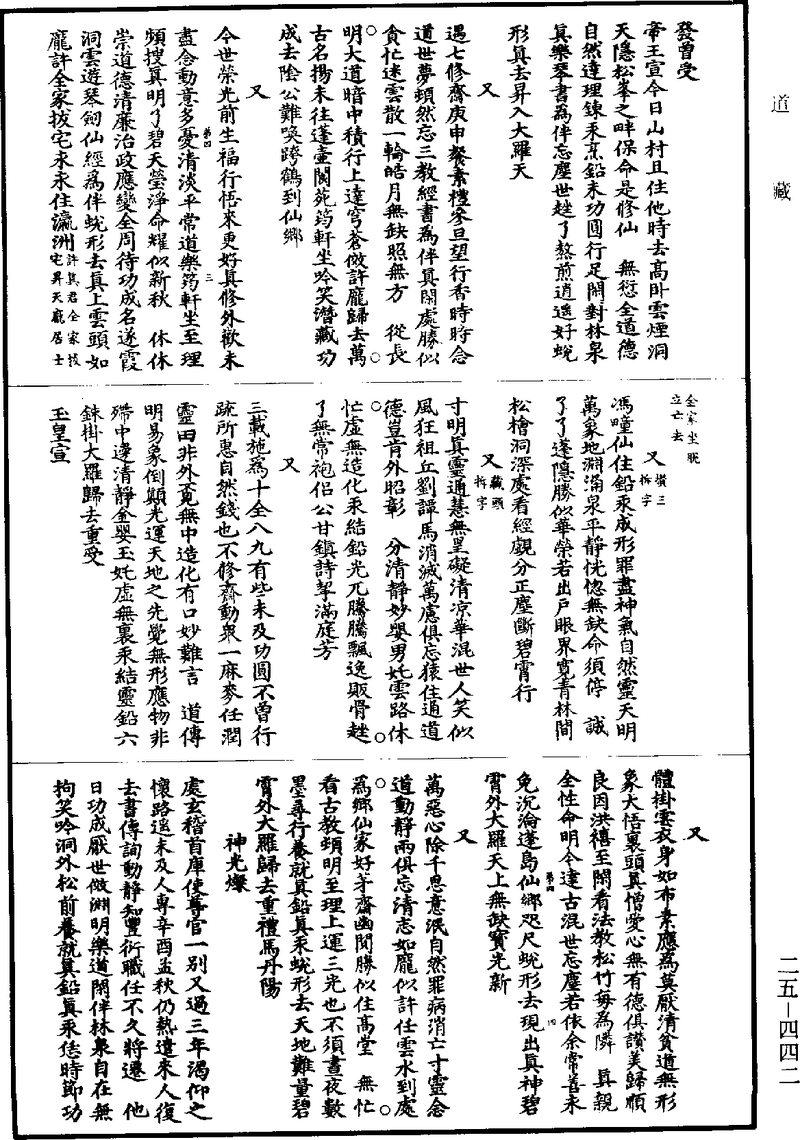 道藏
發曾受
帝王宣今日山村且住他時去高卧雲煙洞
天隱松峯之畔保命是修仙　無愆全道德
自然達理鍊汞烹鉛未功圓行足閑對林泉
真樂琴書為伴忘塵世趓了熬煎逍遥好蛻
形真去昇入大羅天
又
遇七修齋庚申餐素禮參旦望行香時時念
道世夢頓然忘三教經書為伴真閑處勝似
貪忙迷雲散一輪皓月無缺照無方　從長
明大道暗中積行上達穹蒼倣許龐歸去萬
古名揚未往蓬壺閬苑筠軒坐吟笑潛藏功
成去陰公難喚跨鶴到仙鄉
又
今世榮光前生福行悟來更好真修外歡未
盡念動意多憂清淡平常道樂筠軒坐至理
頻搜真明了碧天瑩淨命耀似新秋　休休
崇道德清廉治政應變全周待功成名遂霞
洞雲遊琴劒仙經為伴蛻形去真上雲頭如
龐許全家拔宅永永住瀛洲許真君全家拔宅昇天龐居士
全家坐脫立亡去
又 攢三拆字
馮曈仙住鉛汞成形罪盡神氣自然靈天明
萬象地淵滿泉平靜恍惚無缺命須停　誠
了了達隱勝似華榮若出戶眼界寬青林間
松檜洞深處看經觀分正塵斷碧霄行
又 藏頭拆字
寸明真靈通慧無罣礙清凉華混世人笑似
風狂祖丘劉譚馬消滅萬慮俱忘猿住通道
德豈肯外昭彰　分清靜妙嬰男奼雲路休
忙虛無造化汞結鉛光兀騰騰飄逸販骨趓
了無常袍侣公甘鎮詩挈滿庭芳
又
三載施為十全八九有些未及功圓不曾行
疏所惠自然錢也不修齋動眾一麻麥任潤
靈田非外覓無中造化有口妙難言　道傳
明易象倒顛光運天地之先覺無形應物非
殢中逢清靜金嬰玉奼虛無裏汞結靈鉛六
銖掛大羅歸去重受
玉皇宣
又
體掛雲衣身如布素應為莫厭清貧道無形
象大悟裏頭真憎愛心無有德俱讚美歸順
良因洪禧至閑看法教松竹每為隣　真親
全性命明今達古混世忘塵若依余常善永
免沉淪蓬島仙鄉咫尺蛻形去現出真神碧
霄外大羅天上無缺寶光新
又
萬惡心除千思意泯自然罪病消亡寸靈念
道動靜兩俱忘清志如龐似許任雲水到處
為鄉仙家好茅齋幽閴勝似住高堂　無忙
看古教頻明至理上運三光也不須晝夜數
墨尋行養就真鉛真汞蛻形去天地難量碧
霄外大羅歸去重禮馬丹陽
神光燦
處玄稽首庫使尊官一别又過三年渴仰之
懷路遥未及人專辛酉孟秋仍熱遣來人復
去書傳詢動靜知豐衍職任不久將遷　他
日功成厭世倣淵明樂道閑伴林泉自在無
拘笑吟洞外松前養就真鉛真汞恁時節功
二五—四四二